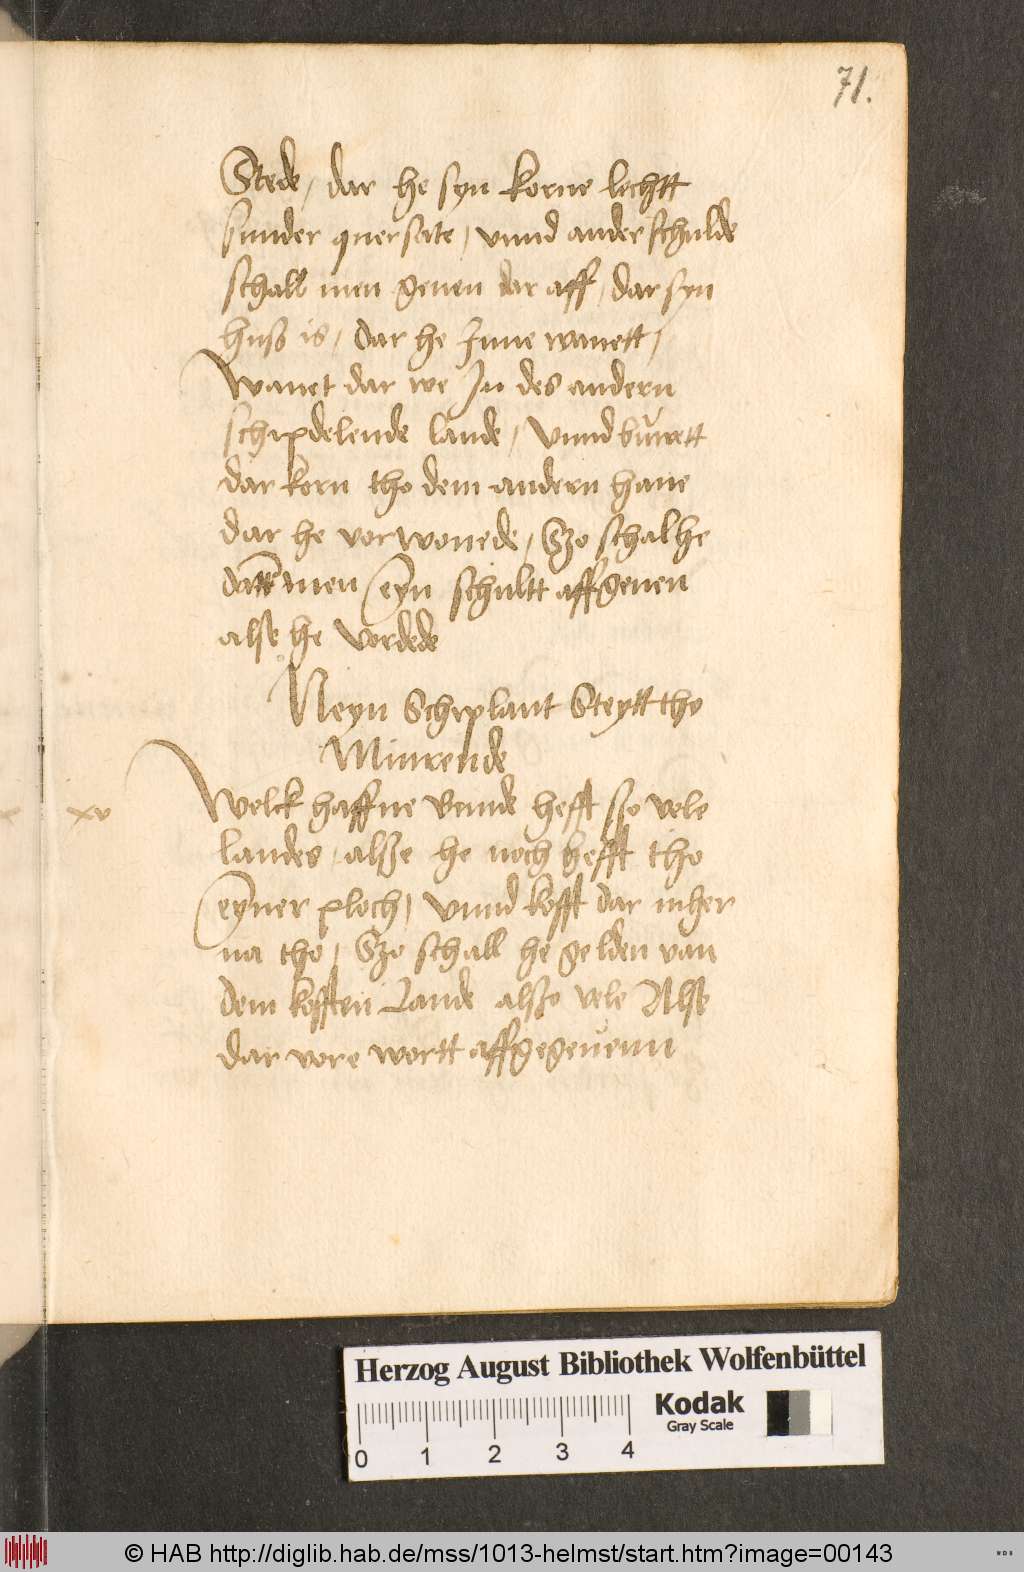 71.
Stede, dar he syn korne lechtt
sunder quersate, vnnd ander schulde
schall men geuen dar aff, dar syn
huss is, dar he Inne wanett,
Wanet dar we In des andern
schipdelende lande, Vnnd buwett
dar korn tho dem andern haue
dar he vorwonede, Szo schal he
men eyn schultt affgeuen
alse he vordede
Neyn Schiplant Steytt tho
Minrende
xv
Welck haffne Bunde hefft sso vele
landes, alsze he noch hefft tho
eyner ploch, Vnnd kofft dar mher
na tho, Szo schall he gelden van
dem kofften Lande alszo vele Alse
dar vore wortt affgegeuenn
Herzog August Bibliothek Wolfenbüttel
Kodak
Gray Scale
0 1 2 3 4
© HAB http://diglib.hab.de/mss/1013-helmst/start.htm?image=00143